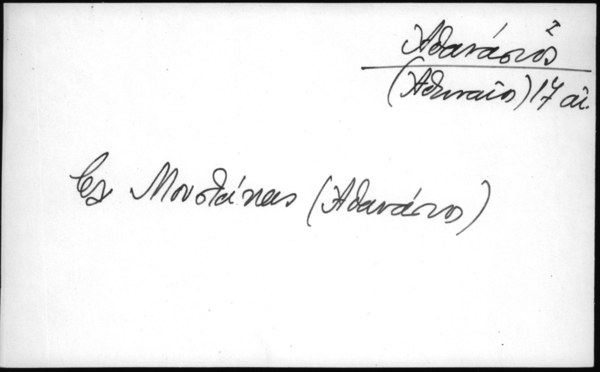 Ἀθανάσιος
(Ἀθηναῖος) 17 αἰ.
Μουστάκας (Ἀθανάσιος)